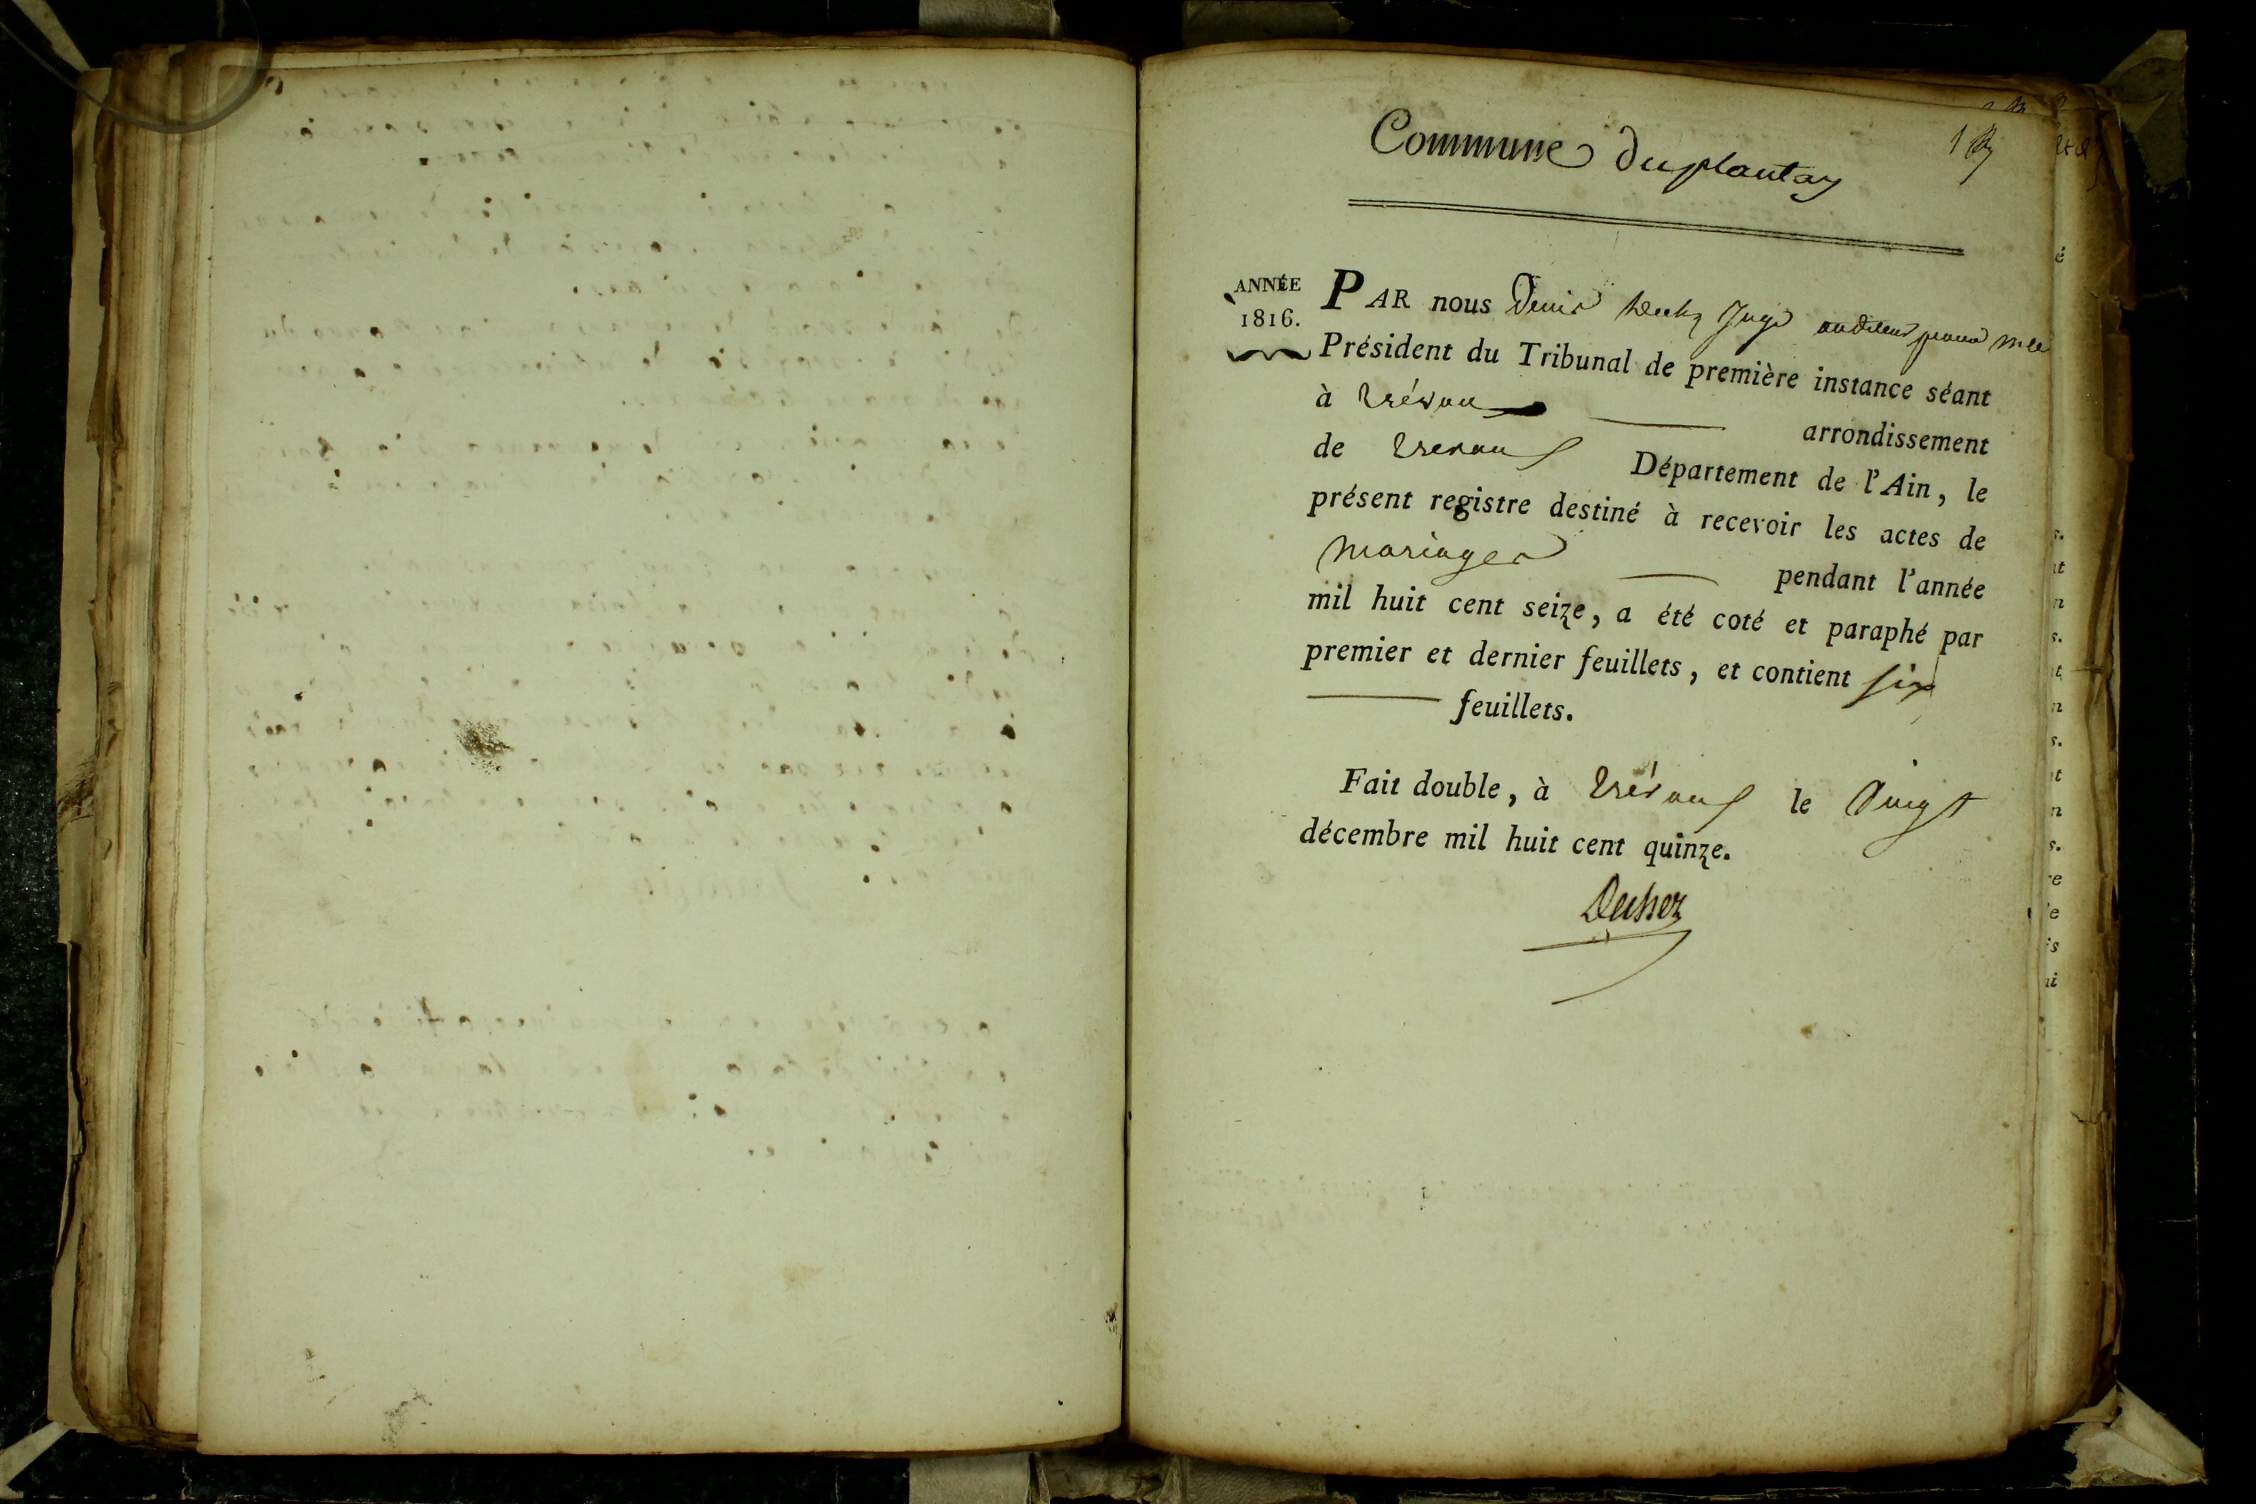 Commune du plantay
1
ANNÉE
1816.
PAR nous Denis Juge auditeur pour mr le
Président du Tribunal de première instance séant
à Trévoux arrondissement
de Trevoux Département de l'Ain, le
présent registre destiné à recevoir les actes de
mariages pendant l'année
mil huit cent seize, a été coté et paraphé par
premier et dernier feuillets, et contient six
feuillets.
Fait double, à Trévoux le vingt
décembre mil huit cent quinze.